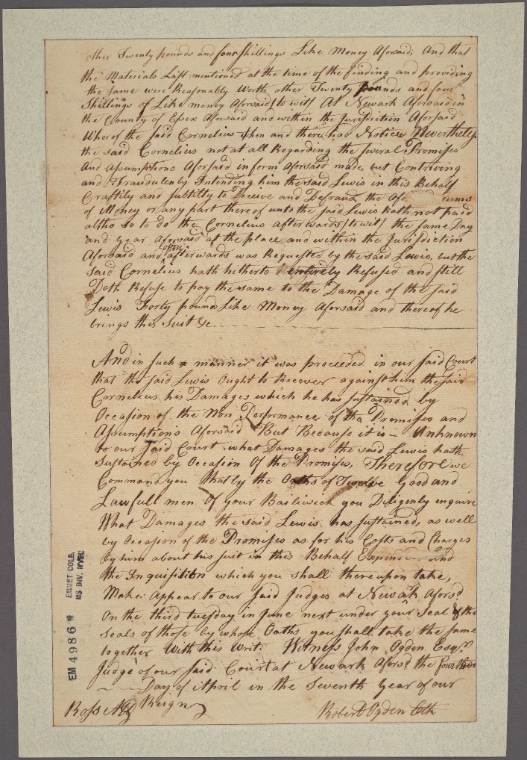 other Twenty pounds and four shillings Like Money Aforsaid. And that
the Materials Last mentioned at the time of the finding and providing
the same were Reasonably Worth other Twenty pounds and four
Shillings of Like money Aforsaid (to wit) At Newark Aforsaid in
the County of Essex Aforsaid and within the Jurisdiction Aforsaid
Wherof the said Cornelius then and there had Notice Nevertheless
the said Cornelius not at all Regarding the several Promises
And Assumptions Aforsaid in form Aforsaid made, but Contriving
and Fraudulently Intending him the said Lewis in this Behalf
Craftily and Subtilly to Deceive and Defraud the Sums
of Money or any part thereof unto the said Lewis hath not paid
altho so to do the Cornelius afterwards (to wit) the same Day
and year Aforsaid at the place and within the Jurisdiction
Aforsaid and often afterwards was Requested by the said Lewis, but the
said Cornelius hath hitherto entirely Refused and still
Doth Refuse to pay the same to the Damage of the said
Lewis Forty pounds Like Money Aforsaid and thereof he
brings this Suit &c.
And in such manner it was proceeded in our said Court
that the said Lewis Ought to Recover against him the said
Cornelius his Damages which he has sustained by
Occasion of the Non Performance of the Promises and
Assumptions Aforsaid But Because it is Unknown
to our Said Court what Damages the said Lewis hath
Sustained by Occasion Of the Promises, Therefore we
Command you that by the Oaths of Twelve Good and
Lawfull men of your Bailiwick you Diligently enquire
What Damages the said Lewis has sustained, as well
by Occasion of the Promises as for his Costs and Charges
by him about his suit in this Behalf Expended and
the Inquisition which you shall thereupon take
Make Appear to our Said Judges at Newark Aforsd
On the third tuesday in June next under your Seal & the
seals of those by whose Oaths you shall take the same
together With this Writ. Witness John Ogden Esqr.
Judge of our said Court at Newark Aforsd the fourteen
Day of April in the Seventh year of our
Reign
Ross Atty
Robert Ogden Clk
EM 4986
EMMET COLL.
MS DIV. NYPL